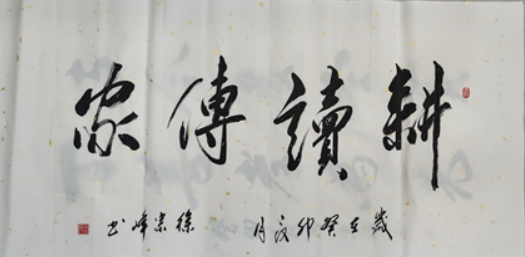 耕讀傳家
歲在癸卯夏月 徐峰书